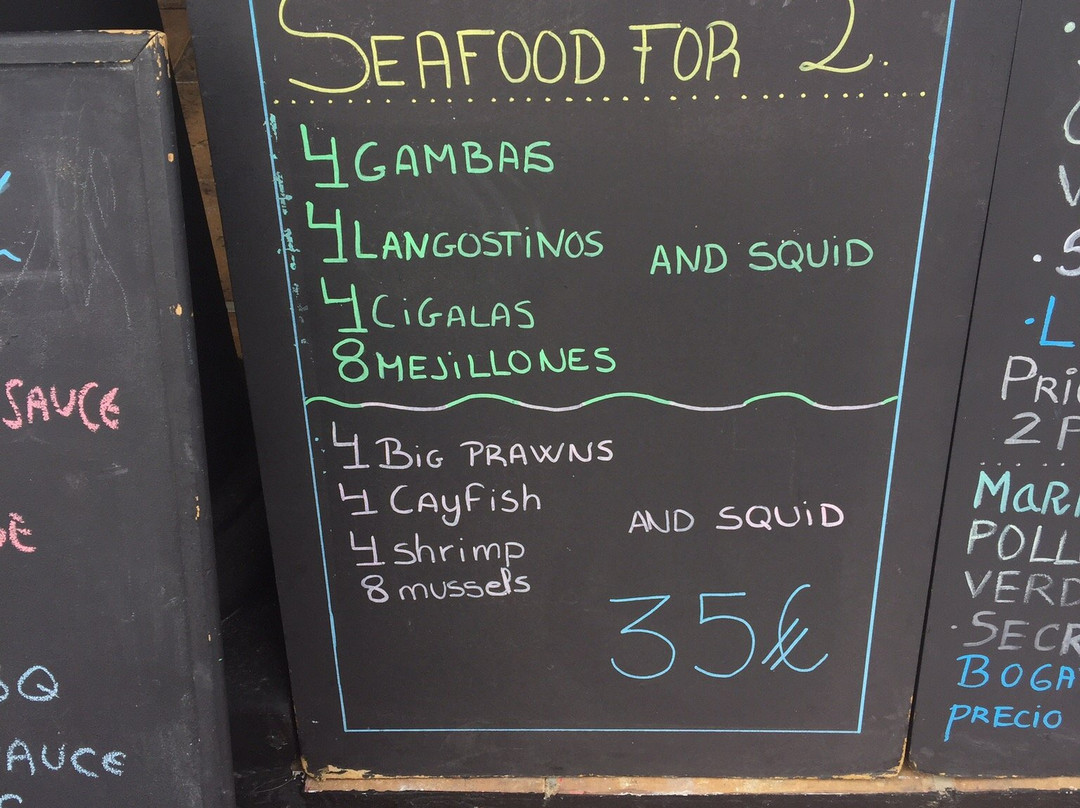 SAUCE
AUCE
SEAFOOD FOR 2.
4 GAMBAS
4 LANGOSTINOS AND SQUID
4 CIGALAS
8 MEJILLONES
4 BIG PRAWNS
4 CAYFISH AND SQUID
4 shrimp
8 mussels
35€
2 P
POLL
VERD
·SECR
BOGA
PRECIO